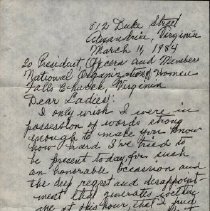 512 Duke Street
Alexandria, Virginia
March 11, 1984
To President, Officers and Members
National Organization of Women
Falls Church, Virginia
Dear Ladies:
I only wish I were in
possession of words strong
enough to make you know
how hard I've tried to
be present today for such
an honorable occasion and
the deep regret and disappoint
ment that
at this hour, that I find